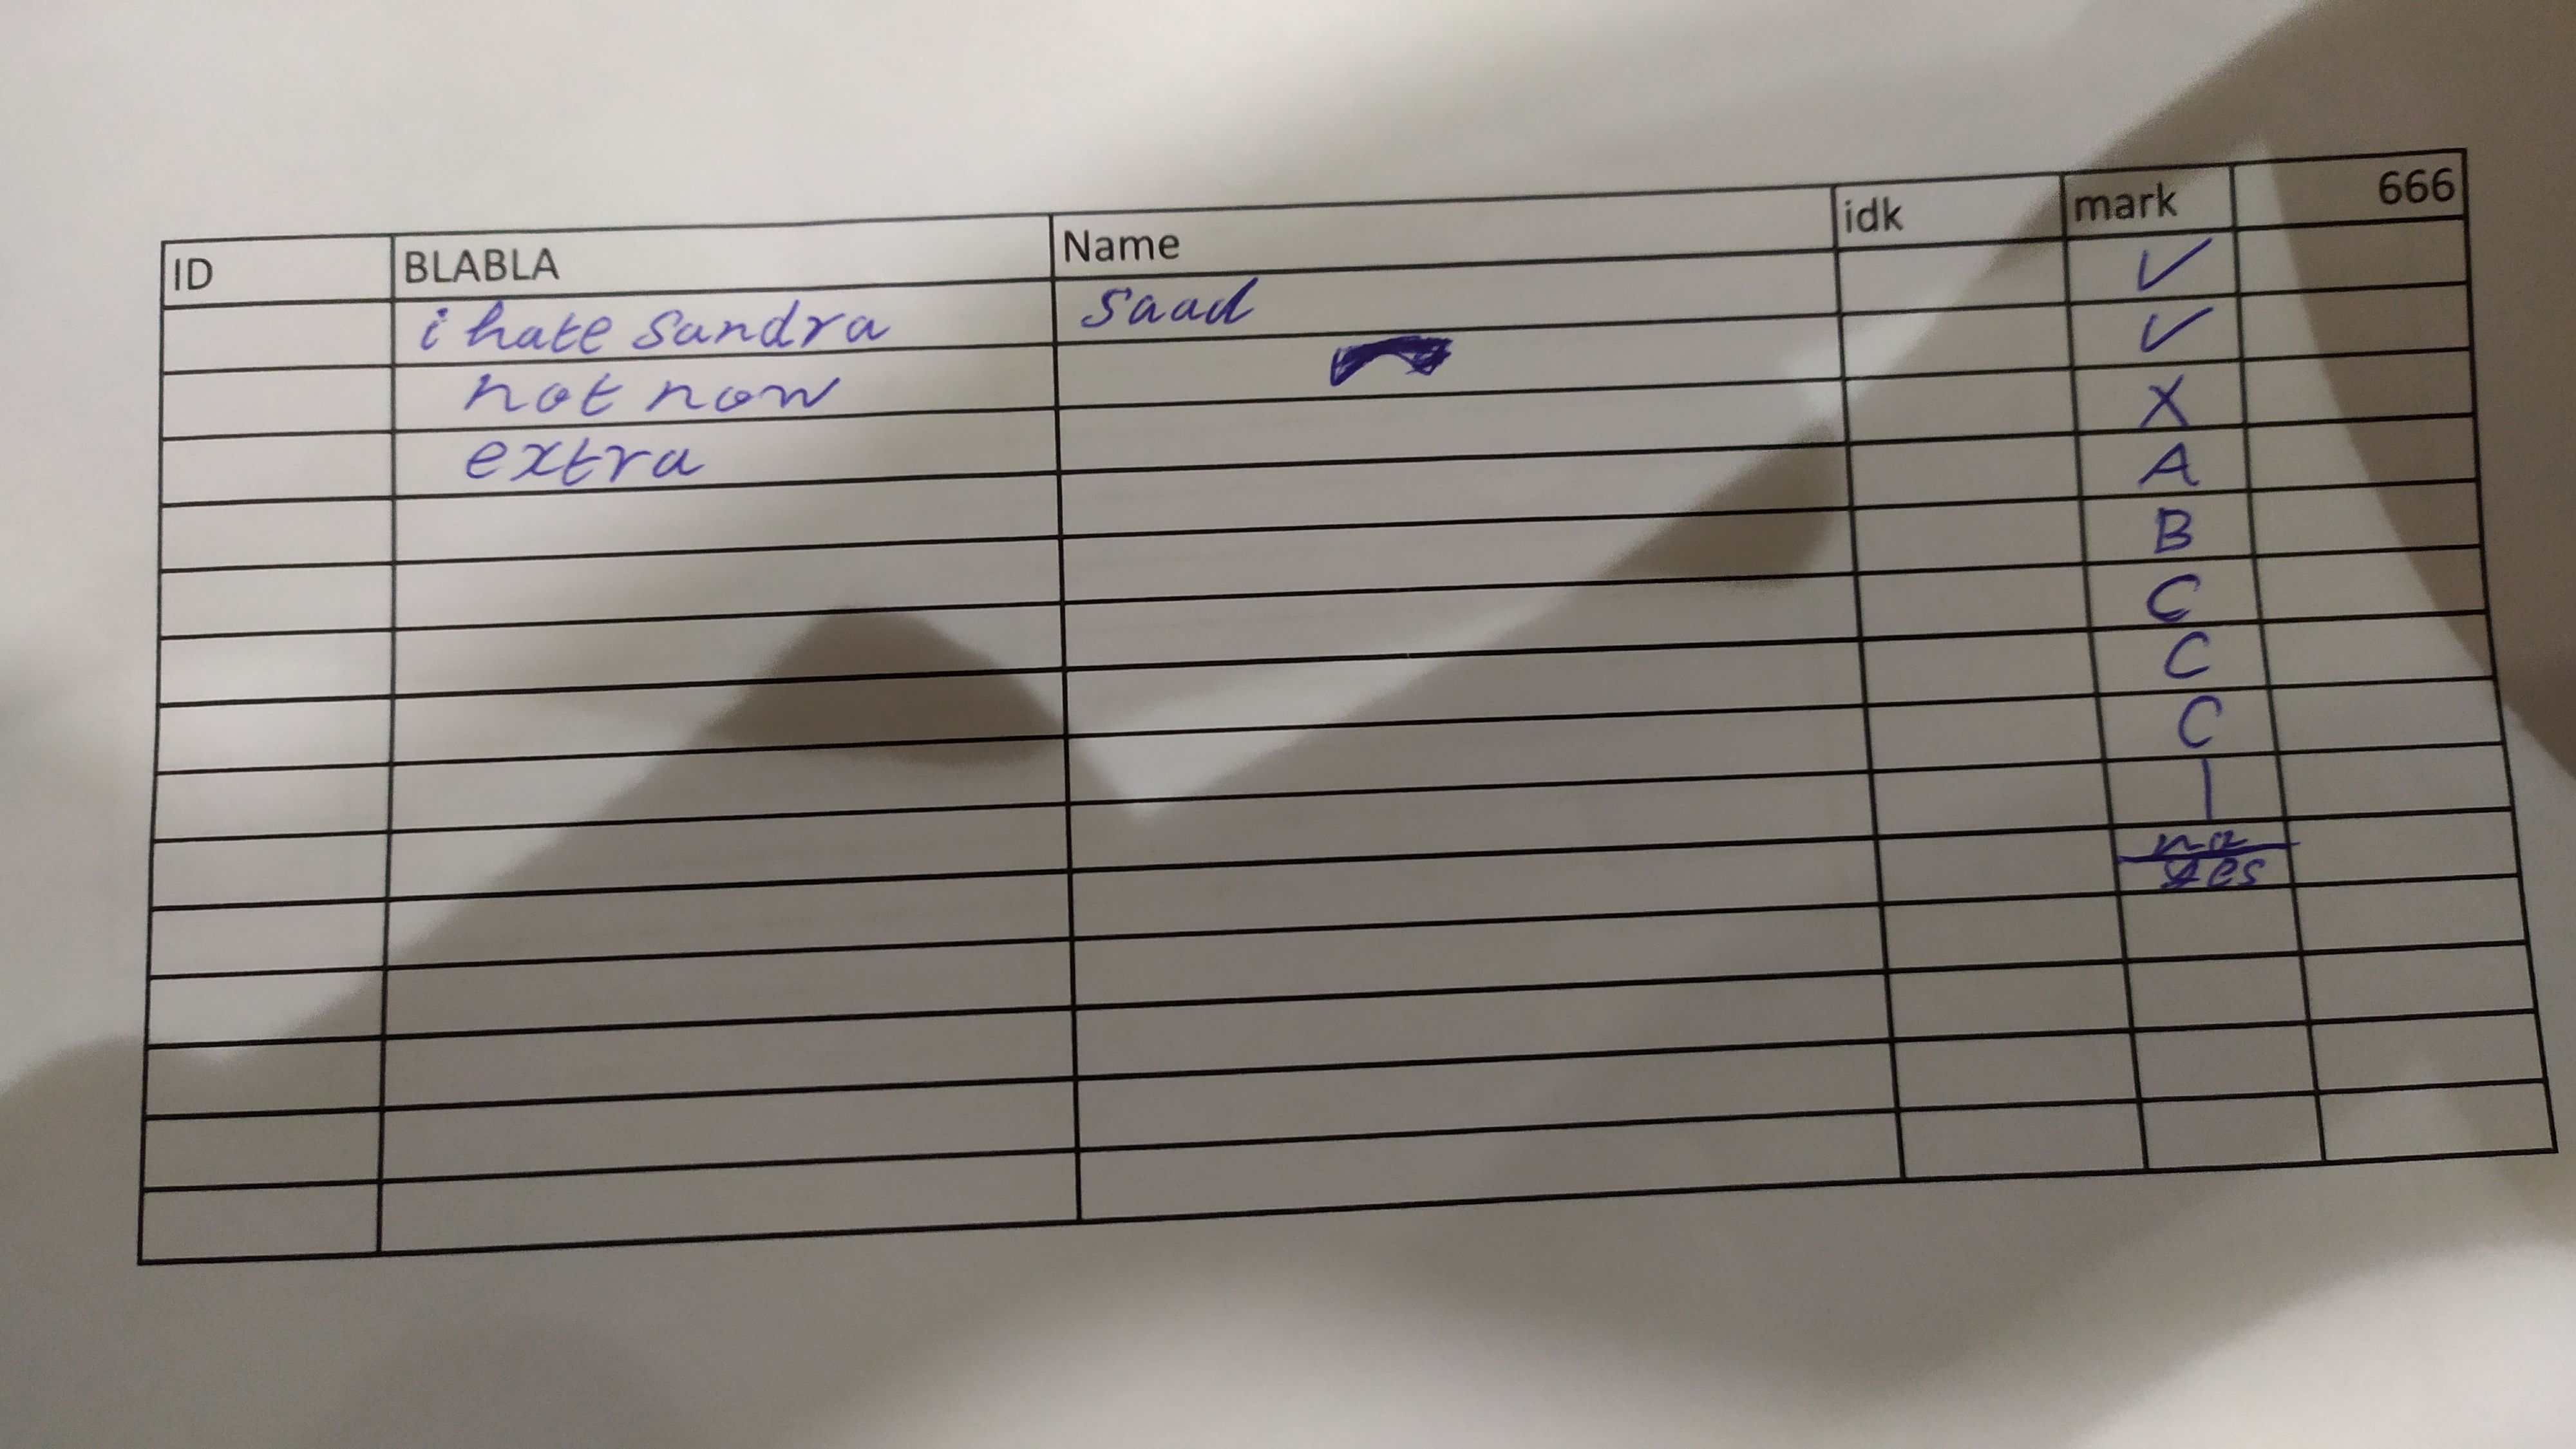 ID BLABLA Name idk mark 666
i hate sandra saad ✓
not now ✓
extra X
A
B
C
C
C
|
yes